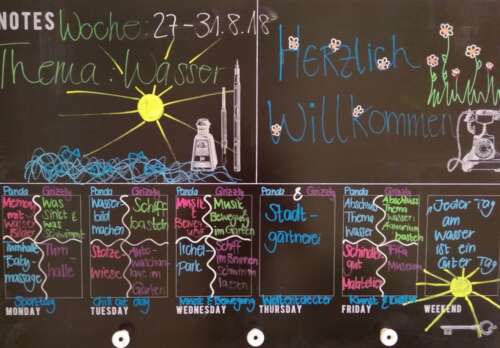 NOTES Woche: 27-31.8.18
Thema: Wasser
Herzlich
Willkommen
Panda Grizzly
Memory
mit
Was
sinkt &
was
schwimmt
Turnhalle
Baby
massage
Turn-
halle
Sporttag
MONDAY
Panda Grizzly
Wasser
bild
machen
Schiff
basteln
Stotze
wiese
Auto
im
Garten
Chill out day
TUESDAY
Panda Grizzly
Musik
&
Beweg
ung
Musik
Bewegung
im Garten
Irchel-
park
Schiff
im Brunnen
schwimmen
lassen
Musik & Bewegung
WEDNESDAY
Panda & Grizzly
Stadt-
gärtnerei
Weltentdecker
THURSDAY
Panda Grizzly
Abschluss
Thema
Wasser
Abschluss
Thema
Wasser:
Aquarium
basteln
Schindler
gut
Malatelier
Fifa
Museum
Kunst & Kultur
FRIDAY
Jeder Tag
am
Wasser
ist ein
Guter Tag
WEEKEND